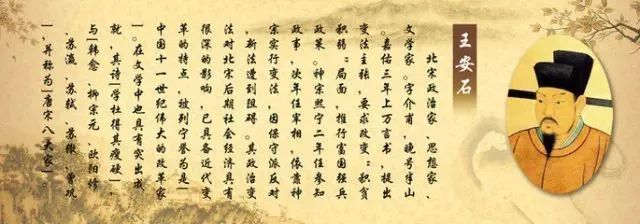 王安石
北宋政治家、思想家、
文学家。字介甫，晚号半山
。嘉佑三年上万言书，提出
变法主张，要求改变“积贫
积弱”局面，推行富国强兵
政策。神宗熙宁二年任参知
政事，次年任宰相，依靠神
宗实行变法，因保守派反对
，新法遭到阻碍。其政治变
法对北宋后期社会经济具有
很深的影响，已具备近代变
革的特点，被列宁誉为是“
中国十一世纪伟大的改革家
”。在文学中也具有突出成
就，其诗“学杜得其瘦硬”
与“韩愈、柳宗元、欧阳修
、苏洵、苏轼、苏辙、曾巩
”，并称为“唐宋八大家”。